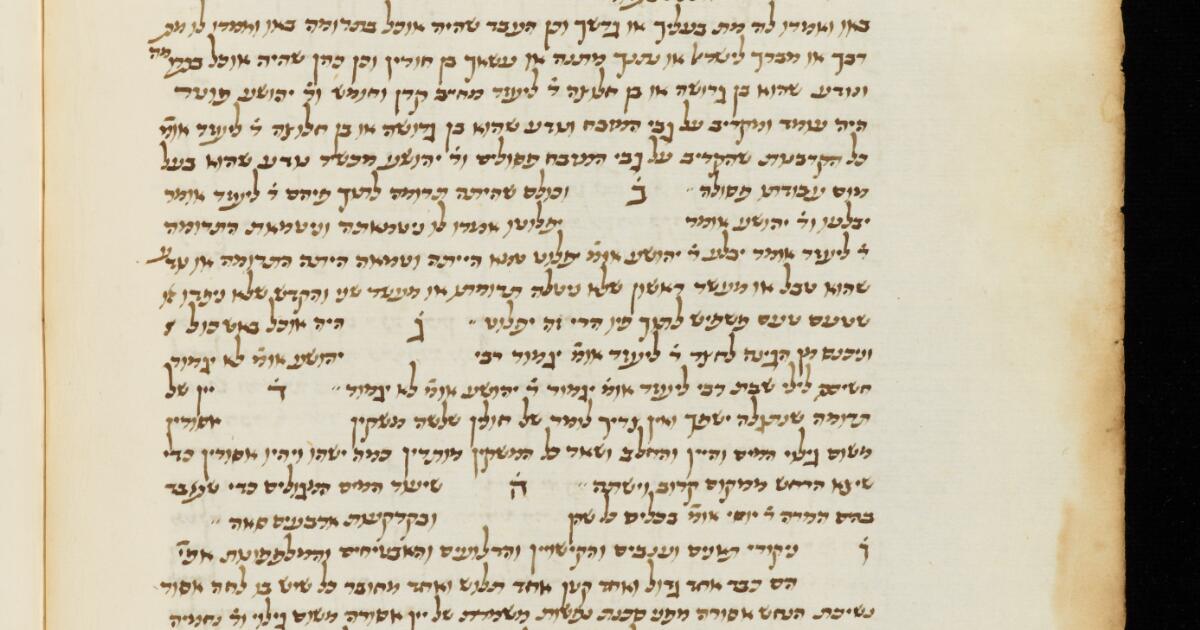 באו ואמרו לה מת בעליך או גרשך וכן העבד שהיה אוכל בתרומה באו ואמרו לו מת
רבך או מכרך לישראל או נתנך מתנה או עשאך בן חורין וכן כהן שהיה אוכל בתרומה
ונודע שהוא בן גרושה או בן חלוצה ר׳ ליעזר מחייב קרן וחומש ור׳ יהושע פוטר
היה עומד ומקריב על גבי המזבח ונודע שהוא בן גרושה או בן חלוצה ר׳ ליעזר אומ׳
כל הקרבנות שהקריב על גבי המזבח פסולים ור׳ יהושע מכשיר נודע שהוא בעל
מום עבודתו פסולה ב וכולם שהיתה תרומה לתוך פיהם ר׳ ליעזר אומר
יבלעו ור׳ יהושע אומר יפלוטו אמרו לו ניטמאתה וניטמאת התרומה
ר׳ ליעזר אומר יבלע ר׳ יהושע אומ׳ יפלוט טמא הייתה וטמאה היתה התרומה או נודע
שהוא טבל או מעשר ראשון שלא ניטלה תרומתו או מעשר שני והקדש שלא ניפדו או
שטעם טעם פשפש לתוך פיו הרי זה יפלוט ג היה אוכל באשכול
ונכנס מן הגינה לחצר ר׳ ליעזר אומ׳ יגמור רבי יהושע אומ׳ לא יגמור
חשיכה לילי שבת רבי ליעזר אומ׳ יגמור ר׳ יהושע אומ׳ לא יגמור ד יין של
תרומה שנתגלה ישפך ואין צריך לומר של חולין שלשה משקין אסורין
משום גילוי המים והיין והחלב ושאר כל המשקין מותרין כמה ישהו ויהיו אסורין כדי
שיצא הרחש ממקום קרוב וישתה ה שיעור המים המגולים כדי שתאבד
בהם המרה ר׳ יוסי אומ׳ בכלים כל שהן ובקרקעות ארבעים סאה
ו ניקורי תאנים וענבים והקישואין והדלועים והאבטיחים והמלפפונות אפי׳
הם ככר אחד גדול ואחד קטן אחד תלוש ואחד מחובר כל שיש בו לחה אסור
נשיכת הנחש אסורה מפני סכנת נפשות משמרת של יין אסורה משום גילוי ור׳ נחמיה